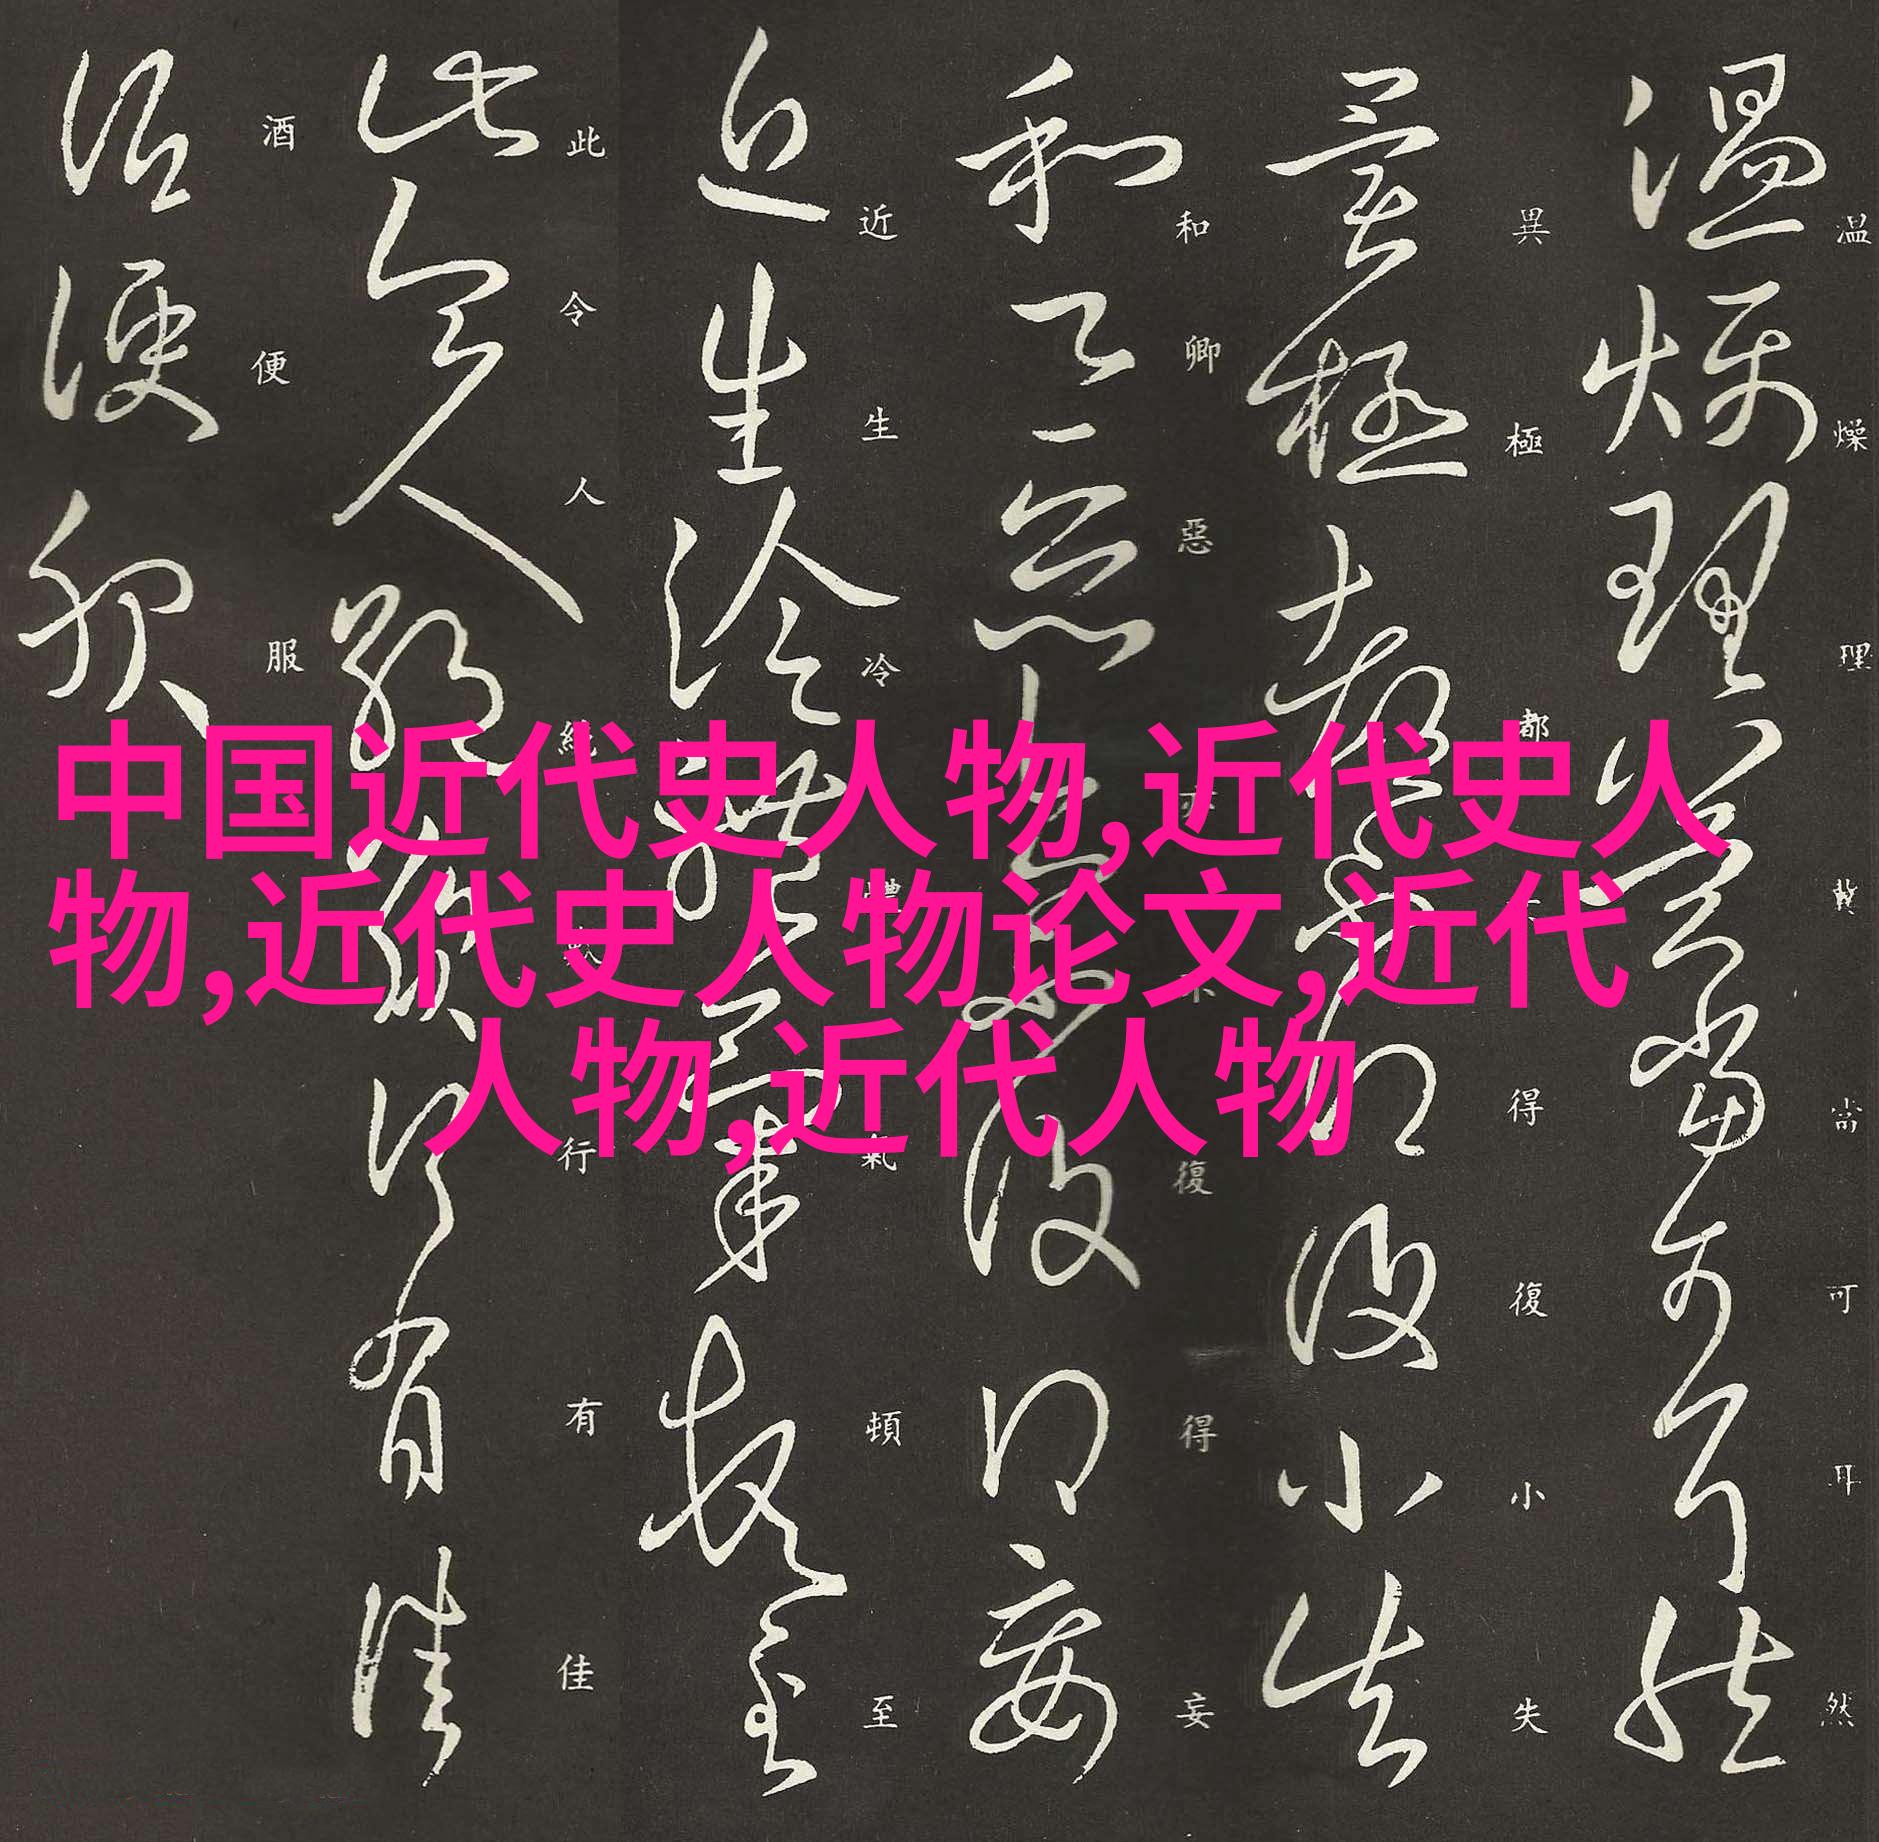 中国近代史人物,近代史人
物,近代史人物论文,近代
人物,近代人物
温燥理冀當可耳然
異極都不得復小失
和卿惡可不復得妄
近生冷體氣頓至
此令人絶歎行有佳
酒便服